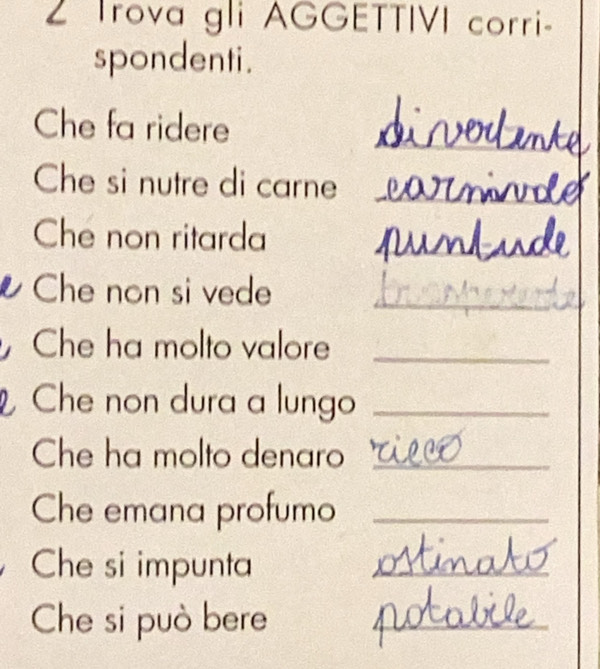 2 Trova gli AGGETTIVI corri-
spondenti.
Che fa ridere divertente
Che si nutre di carne
Che non ritarda puntuale
Che non si vede trasparente
Che ha molto valore
Che non dura a lungo
Che ha molto denaro ricco
Che emana profumo
Che si impunta ostinato
Che si può bere potabile